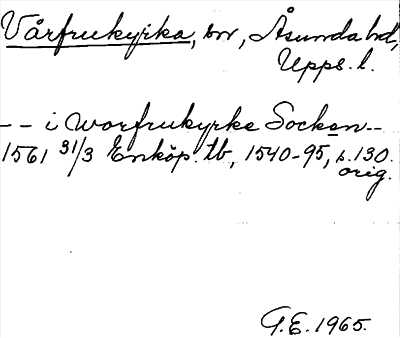 Vårfrukyrka, sn, Åsunda hd,
Upps. l.
-- i worfrukyrke Socken --
1561 31/3 Enköp. tb, 1540-95, s. 130.
orig.
G.E. 1965.